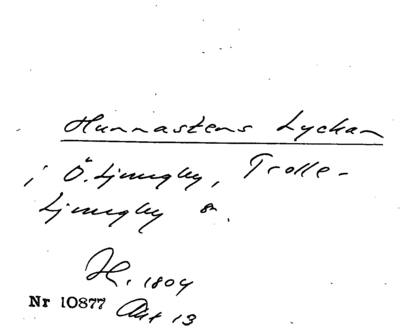 Hunnastens Lyckan
i Ö. Ljungby, Trolle-
Ljungby sn.
H. 1804
Nr 10877 Akt 13